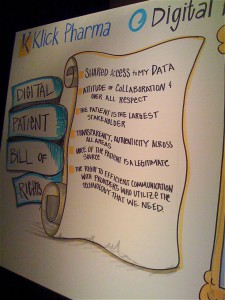 Klick Pharma
Digital
DIGITAL
PATIENT
BILL OF
RIGHTS
SHARED ACCESS TO MY DATA
ATTITUDE OF COLLABORATION &
OVER ALL RESPECT
THE PATIENT IS THE LARGEST
STAKEHOLDER
TRANSPARENCY, AUTHENTICITY ACROSS
ALL AREAS
VOICE OF THE PATIENT IS A LEGITIMATE
SOURCE
THE RIGHT TO EFFICIENT COMMUNICATION
WITH PROVIDERS WHO UTILIZE THE
TECHNOLOGY THAT WE NEED.